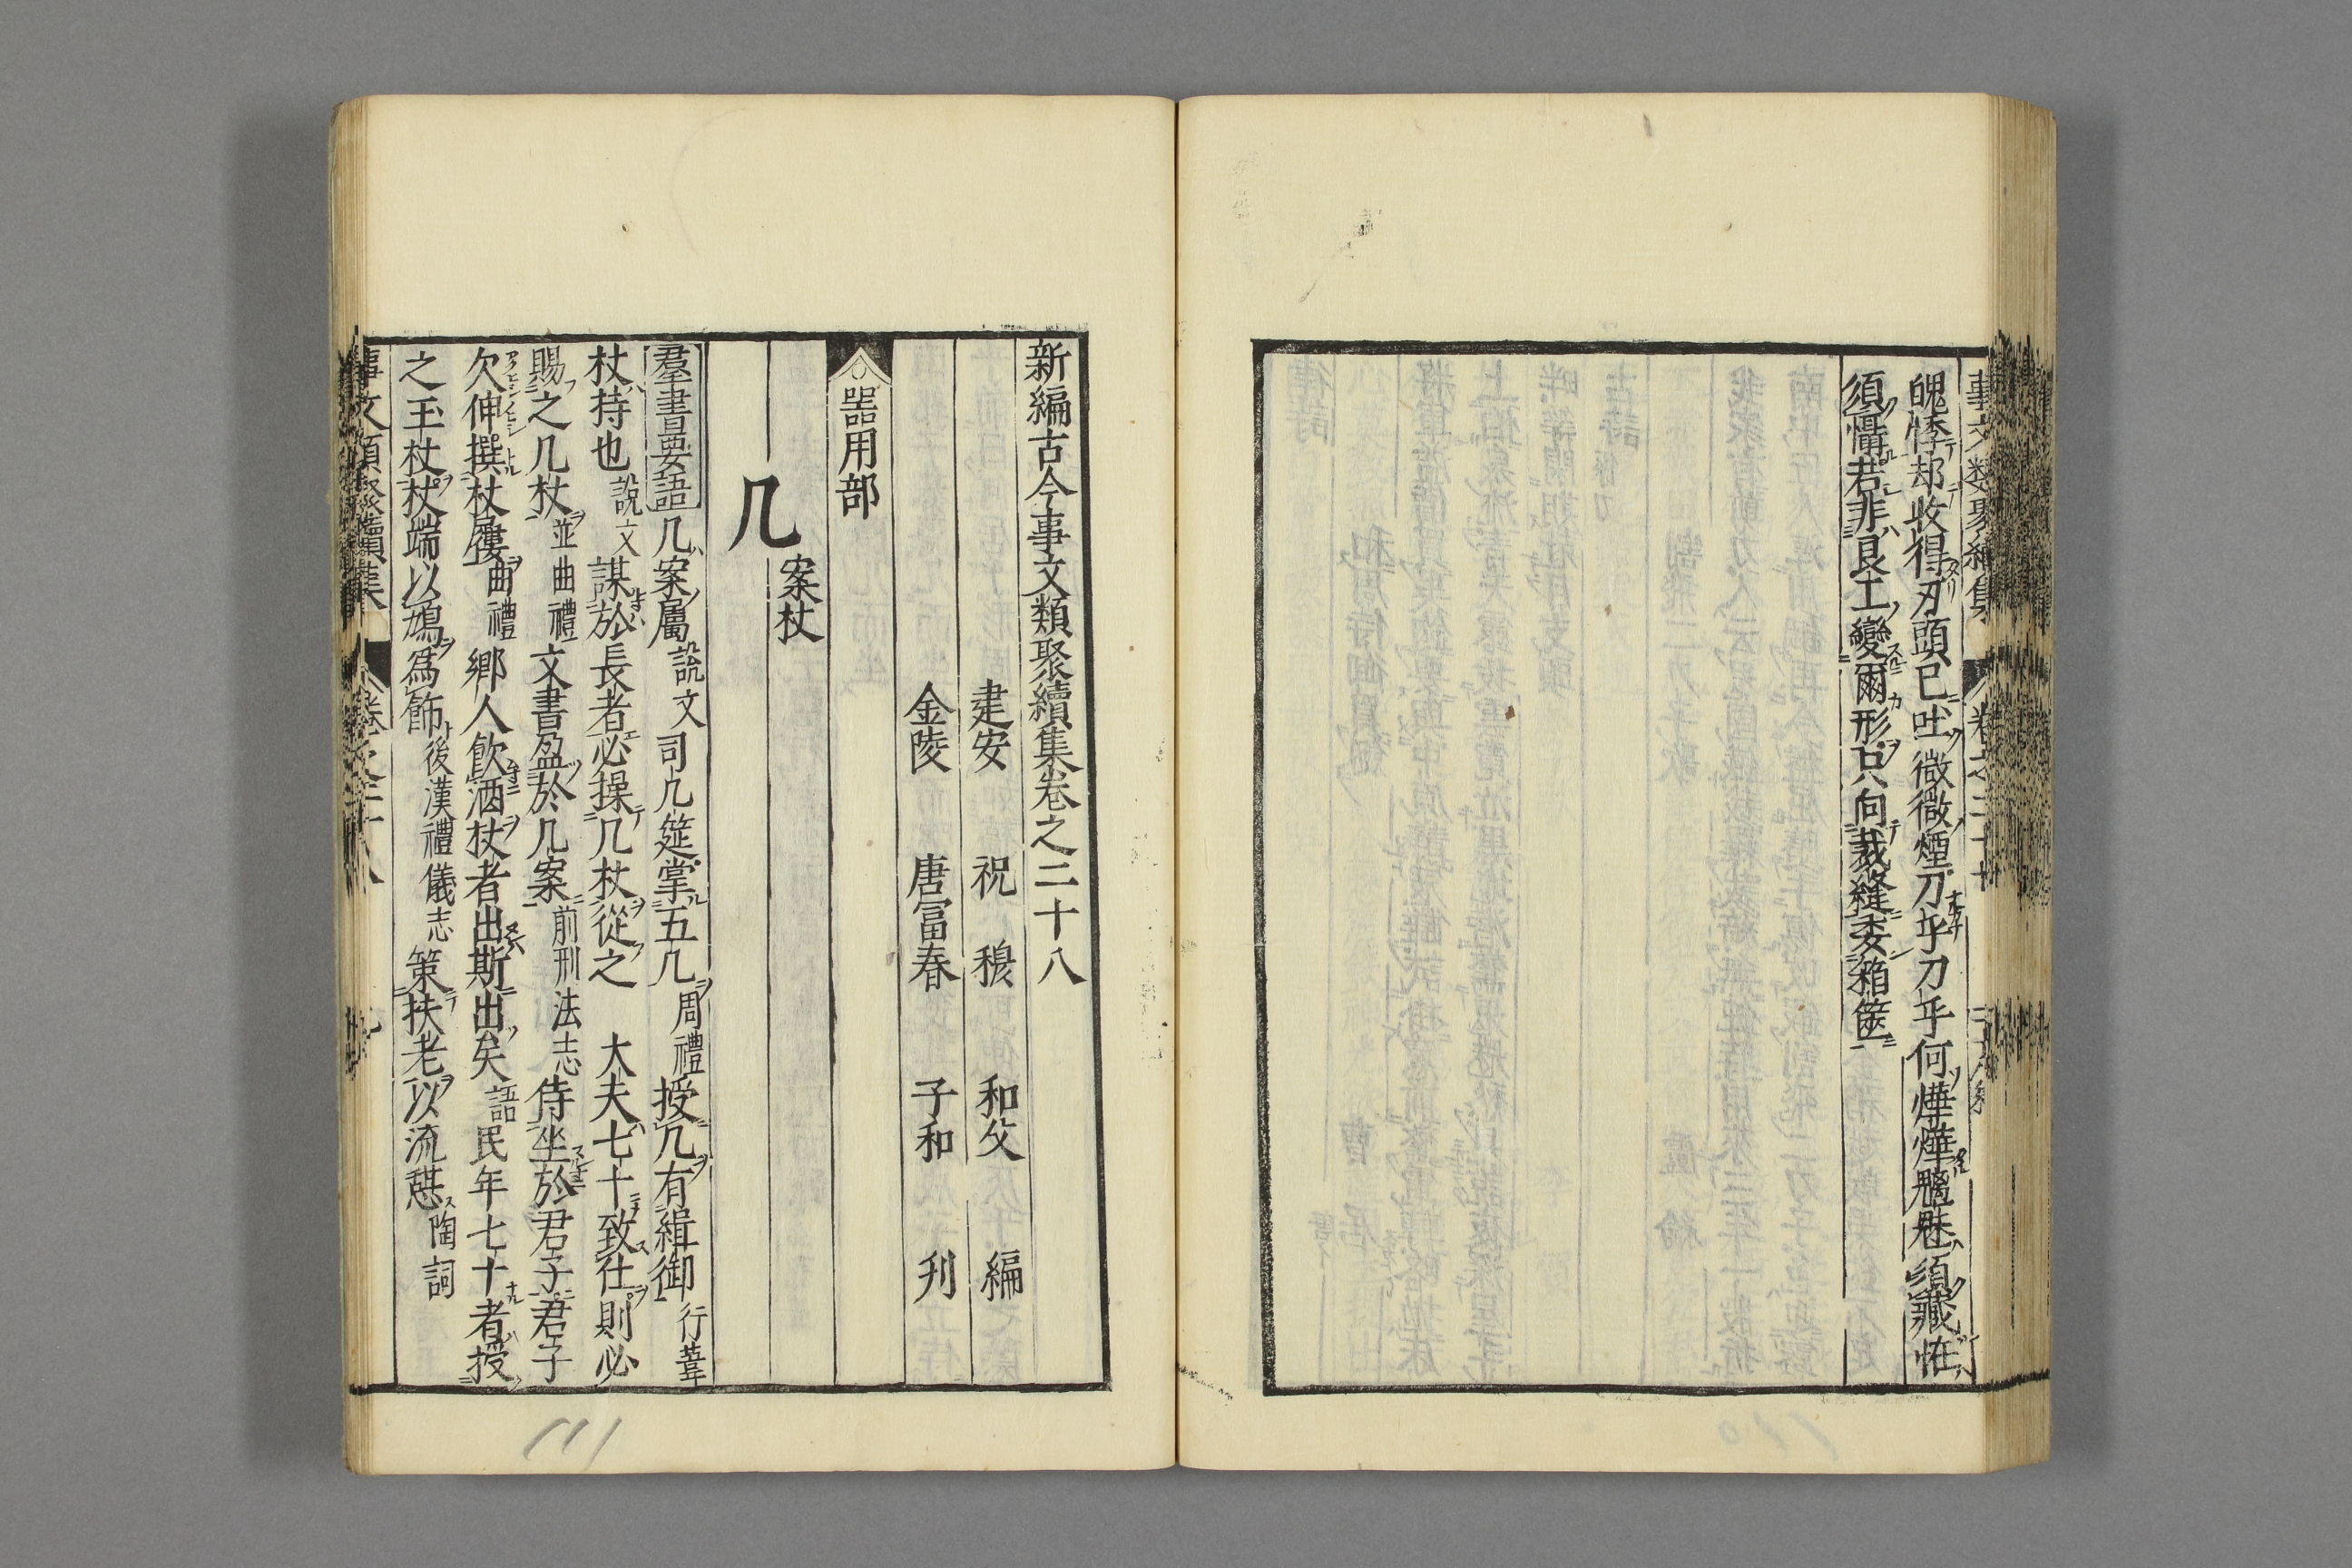 魄悸却收得刃頭已吐微微煙刀乎刀乎何燁燁魑魅須藏恠
須慴若非良工變爾形只向裁縫委箱篋
新編古今事文類聚續集卷之二十八
建安 祝 穆 和父 編
金陵 唐冨春 子和 刋
器用部
几 案杖
羣書要語 几案屬 說文 司几筵掌五几 周禮 授几有緝御 行葦
杖持也 說文 謀於長者必操几杖從之 大夫七十致仕則必
賜之几杖 並曲禮 文書盈於几案 前刑法志 侍坐於君子君子
欠伸撰杖屨 曲禮 鄉人飲酒杖者出斯出矣 語 民年七十者授
之玉杖杖端以鳩爲飾 後漢禮儀志 策扶老以流憇 陶詞
事文類聚續集 卷之二十八
111